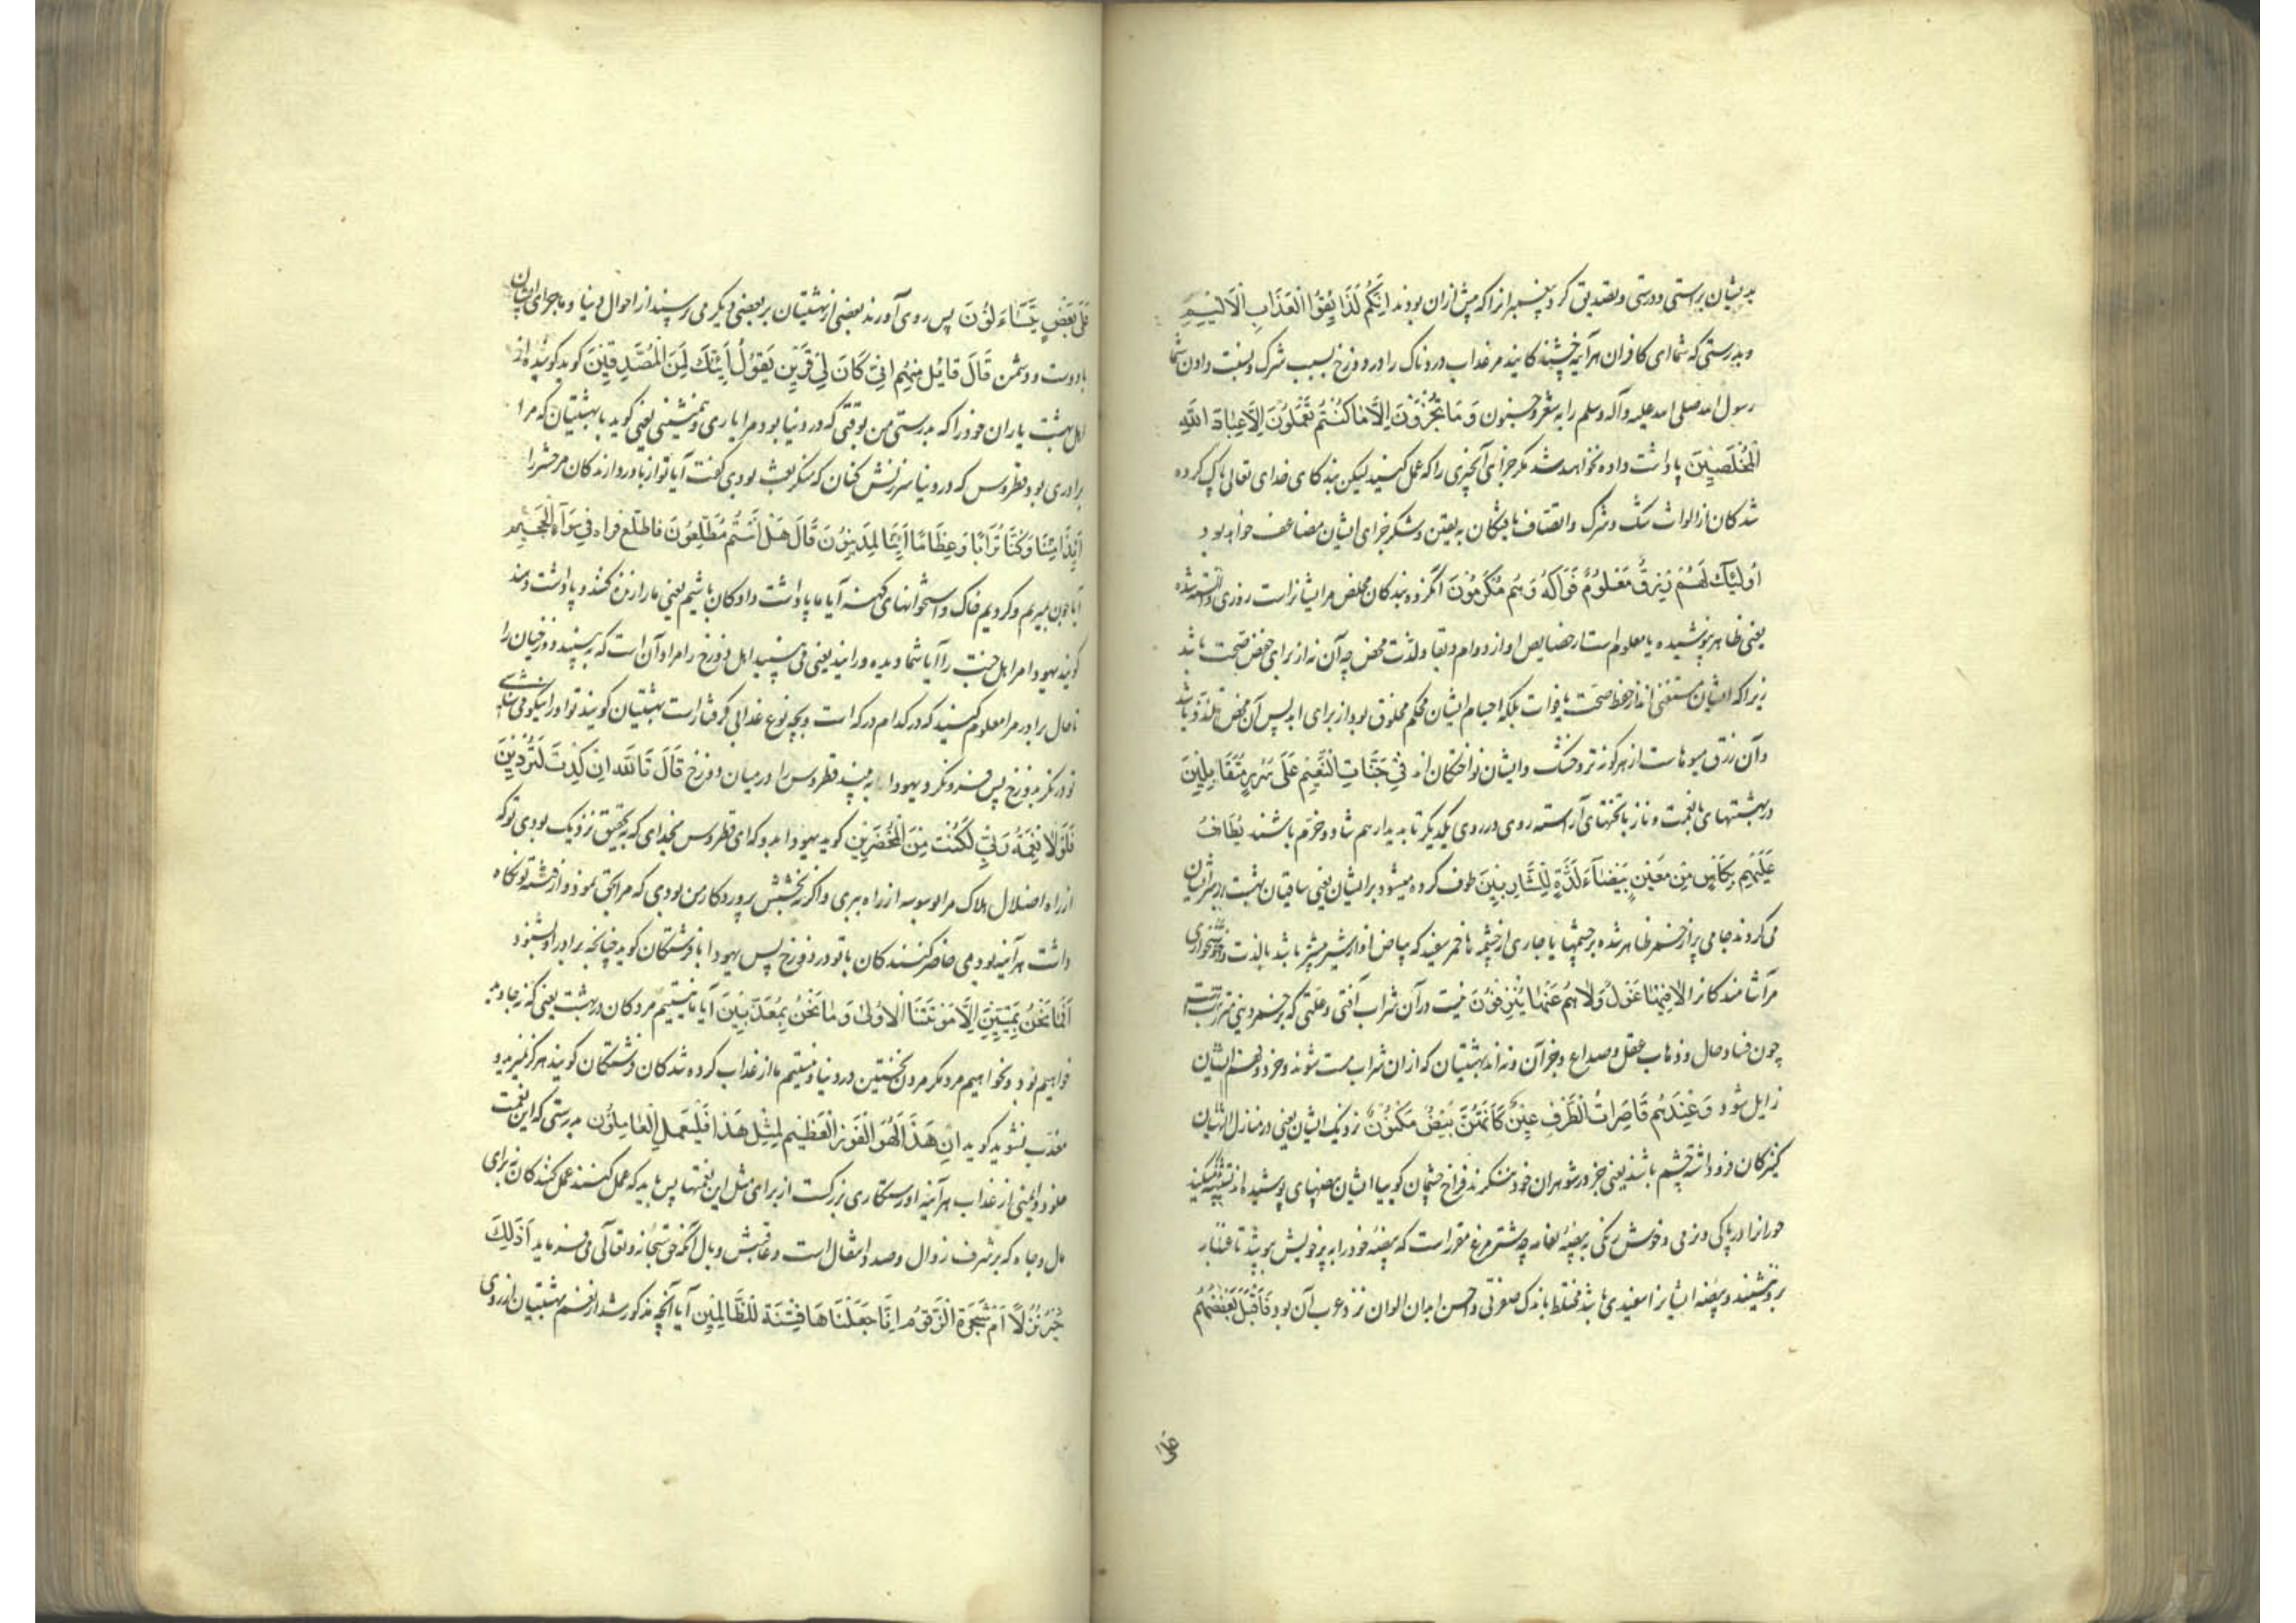 بدیشان براستی و درستی و تصدیق کرد پیغمبرانرا که پیش ازان بودند اِنَّكُمْ لَذَائِقُوا الْعَذَابِ الْاَلِيمِ
و بدرستی که شما ای کافران هرآینه چشندکانید مر عذاب دردناک را در دوزخ بسبب شرک و نسبت دادن شما
رسول الله صلی الله علیه وآله وسلم را به شعر و جنون وَمَا تُجْزَوْنَ اِلَّا مَا كُنْتُمْ تَعْمَلُونَ اِلَّا عِبَادَ اللّٰهِ
الْمُخْلَصِينَ پاداشت داده نخواهید شد مکر جزای آنچیزی را که عمل کنید لیکن بندکان خدای تعالی پاک کرده
شدکان از الواث شک و شرک و اتصاف یافتکان به یقین و شکر جزای ایشان مضاعف خواهد بود
اُولٰئِكَ لَهُمْ رِزْقٌ مَعْلُومٌ فَوَاكِهُ وَهُمْ مُكْرَمُونَ آنکروه بندکان مخلص مر ایشانراست روزی دانسته شده
یعنی ظاهر نوشیده یا معلوم است خصایص او از دوام و بقا و لذت محض چه آن نه از برای حفظ صحت باشد
زیرا که ایشان مستغنی اند از حفظ صحت باقوات بلکه اجسام ایشان محکم مخلوق بود از برای ابد پس آن محض تلذذ باشد
و آن رزق میوهاست از هرکونه تر و خشک و ایشان نواختکان اند فِي جَنَّاتِ النَّعِيمِ عَلَى سُرُرٍ مُتَقَابِلِينَ
در بهشتهای با نعمت و ناز با تختهای آراسته روی در روی یکدیکر تا بدیدار هم شاد و خرم باشند يُطَافُ
عَلَيْهِمْ بِكَأْسٍ مِنْ مَعِينٍ بَيْضَاءَ لَذَّةٍ لِلشَّارِبِينَ طوف کرده میشود بر ایشان یعنی ساقیان بهشت بر سر ایشان
می کردانند جامی پر از خمر ظاهر شده بر چشمها یا جاری از چشمه با خمر سفید که بیاض او از شیر بیشتر باشد با لذت
مر آشامندکانرا لَا فِيهَا غَوْلٌ وَلَا هُمْ عَنْهَا يُنْزَفُونَ نیست در آن شراب آفتی و علتی که بر خمر دنیی مترتبست
چون فساد حال و ذهاب عقل و صداع و جز آن و نه اند بهشتیان که ازان شراب مست شوند و خرد و فهم ایشان
زایل شود وَعِنْدَهُمْ قَاصِرَاتُ الطَّرْفِ عِينٌ كَاَنَّهُنَّ بَيْضٌ مَكْنُونٌ نزدیک ایشان یعنی در منازل ایشان
کنیزکان فرو داشته چشم باشند یعنی جز در شوهران خود ننکرند فراخ چشمان کوییا ایشان بیضهای پوشیده اند تشبیه میکند
حورانرا در پاکی و نرمی و خوش رنکی به بیضه نعامه چه شتر مرغ مقرر است که بیضه خود را به پر خویش بپوشد تا غبار
برو ننشیند و بیضه ایشانرا سفیدی باشد مختلط باندک صفرتی و احسن ابدان الوان نزد عرب آن بود فَاَقْبَلَ بَعْضُهُمْ
علی
عَلَى بَعْضٍ يَتَسَاءَلُونَ پس روی آورند بعضی از بهشتیان بر بعضی دیکر می پرسیند از احوال دنیا و ماجرای ایشان
با دوست و دشمن قَالَ قَائِلٌ مِنْهُمْ اِنِّي كَانَ لِي قَرِينٌ يَقُولُ اَئِنَّكَ لَمِنَ الْمُصَدِّقِينَ کوید کوینده از
اهل بهشت یاران خود را که بدرستی من بوقتی که در دنیا بود مرا یاری و همنشینی یعنی کوید با بهشتیان که مرا
برادری بود قطروس که در دنیا سرزنش کنان که منکر بعث بودی کفت آیا تو از باور دارندکان مر حشر را
اَئِذَا مِتْنَا وَكُنَّا تُرَابًا وَعِظَامًا اَئِنَّا لَمَدِينُونَ قَالَ هَلْ اَنْتُمْ مُطَّلِعُونَ فَاطَّلَعَ فَرَاٰهُ فِي سَوَاءِ الْجَحِيمِ
آیا چون بمیریم و کردیم خاک و استخوانهای کهنه آیا ما پاداشت دادکان باشیم یعنی ما را زنده کنند و پاداشت دهند
کوید یهودا مر اهل جنت را آیا شما دیده ورانید یعنی می بینید اهل دوزخ را مراد آن است که ببینید دوزخیان را
تا حال برادر مرا معلوم کنید که در کدام درکه است و بچه نوع عذابی کرفتار است بهشتیان کویند تو او را نیکو می شناسی
تو درنکر بدوزخ پس فرونکرد یهودا به بیند قطروس را در میان دوزخ قَالَ تَاللّٰهِ اِنْ كِدْتَ لَتُرْدِينَ
فَلَوْلَا نِعْمَةُ رَبِّي لَكُنْتُ مِنَ الْمُحْضَرِينَ کوید یهودا بدو که ای قطروس بخدای که بتحقیق نزدیک بودی تو که
از راه اضلال هلاک مرا و بوسوسه از راه ببری و اکر نه بخشش پروردکار من بودی که مرا بحق نمود و از فتنه تو نکاه
داشت هرآینه بودمی حاضر کنندکان با تو در دوزخ پس یهودا با فرشتکان کوید چنانچه برادر او بشنود
اَفَمَا نَحْنُ بِمَيِّتِينَ اِلَّا مَوْتَتَنَا الْاُولٰى وَمَا نَحْنُ بِمُعَذَّبِينَ آیا ما نیستیم مردکان در بهشت یعنی که نه جاوید
خواهیم بود و نخواهیم مرد مکر مردن نخستین در دنیا و نیستیم ما از عذاب کرده شدکان فرشتکان کویند هرکز نمیرید و
معذب نشوید کوید اِنَّ هٰذَا لَهُوَ الْفَوْزُ الْعَظِيمُ لِمِثْلِ هٰذَا فَلْيَعْمَلِ الْعَامِلُونَ بدرستی که این نعمت
خلود و ایمنی از عذاب هرآینه او رستکاری بزرکست از برای مثل این نعمتها پس باید که عمل کنند عمل کنندکان نه برای
مال و جاه که بر شرف زوال و صدد انتقال است و عاقبتش وبال آنکه حق سبحانه و تعالی می فرماید اَذٰلِكَ
خَيْرٌ نُزُلًا اَمْ شَجَرَةُ الزَّقُّومِ اِنَّا جَعَلْنَاهَا فِتْنَةً لِلظَّالِمِينَ آیا آنچه مذکور شد از نعیم بهشتیان از روی